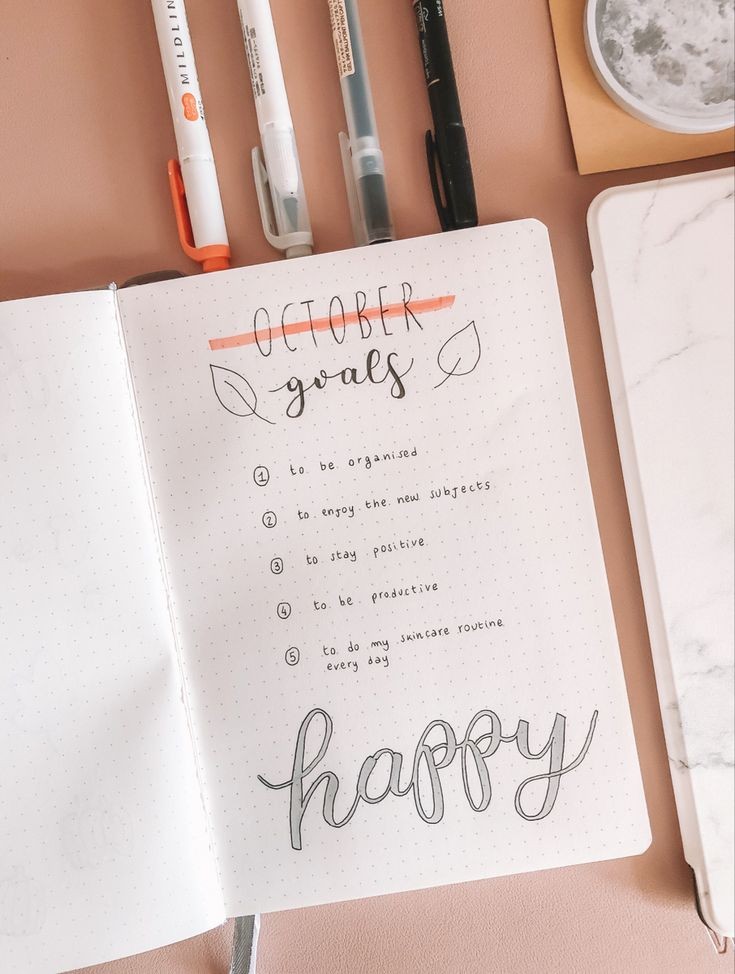 MILDLIN
OCTOBER
goals
1 to be organised
2 to enjoy the new subjects
3 to stay positive
4 to be productive
5 to do my skincare routine
every day
happy